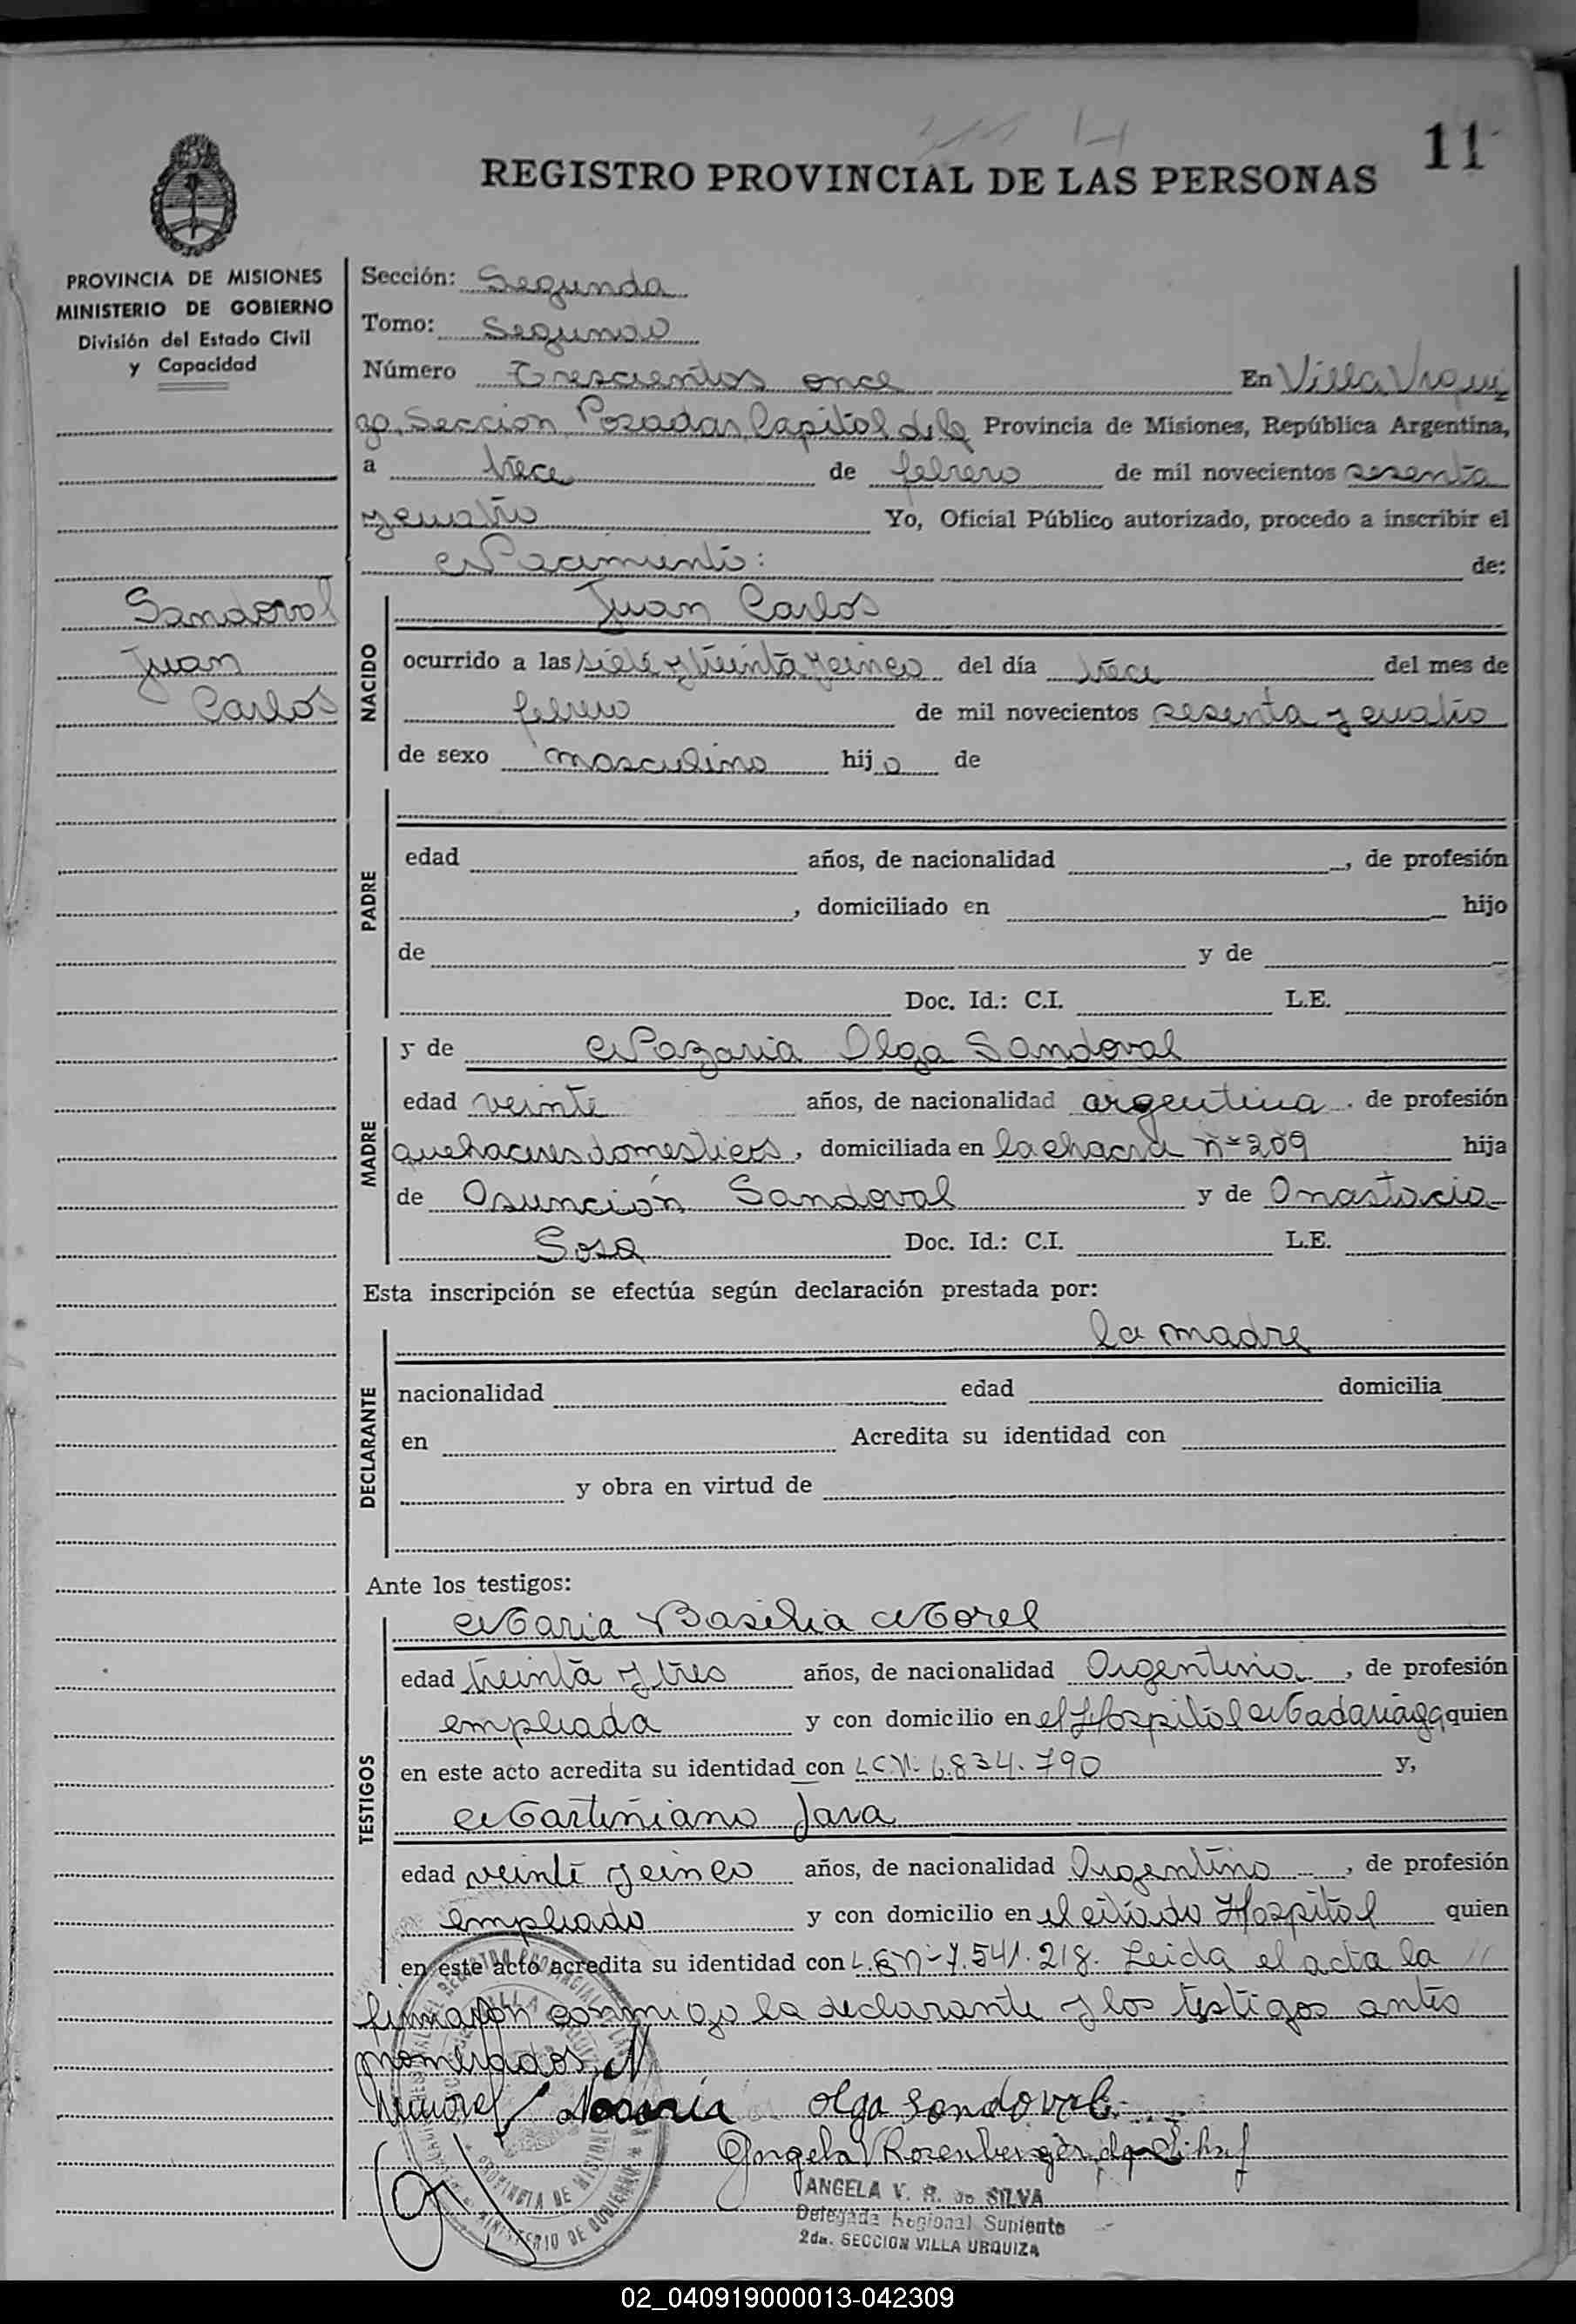 11
REGISTRO PROVINCIAL DE LAS PERSONAS
PROVINCIA DE MISIONES
MINISTERIO DE GOBIERNO
División del Estado Civil
y Capacidad
Sandoval
Juan
Carlos
Sección: Segunda
Tomo: Segundo
Número Trescientos once En Villa Urqui
za, Seccion Posadas, Capital de la Provincia de Misiones, República Argentina,
a trece de febrero de mil novecientos sesenta
y cuatro Yo, Oficial Público autorizado, procedo a inscribir el
Nacimiento: de:
NACIDO
Juan Carlos
ocurrido a las siete y treinta y cinco del día trece del mes de
febrero de mil novecientos sesenta y cuatro
de sexo masculino hijo de
PADRE
edad años, de nacionalidad , de profesión
, domiciliado en hijo
de y de
Doc. Id.: C.I. L.E.
MADRE
y de Nazaria Olga Sandoval
edad veinte años, de nacionalidad argentina, de profesión
quehaceres domesticos, domiciliada en la chacra nº 209 hija
de Asunción Sandoval y de Anastacia
Sosa Doc. Id.: C.I. L.E.
Esta inscripción se efectúa según declaración prestada por:
DECLARANTE
la madre
nacionalidad edad domicilia
en Acredita su identidad con
y obra en virtud de
Ante los testigos:
TESTIGOS
Maria Basilia Morel
edad treinta y tres años, de nacionalidad Argentina, de profesión
empleada y con domicilio en el Hospital Madariaga quien
en este acto acredita su identidad con L.C.N. 6.834.790 y,
Martiniano Jara
edad veinte y cinco años, de nacionalidad Argentino, de profesión
empleado y con domicilio en el citado Hospital quien
en este acto acredita su identidad con L.E.Nº 7.541.218. Leida el acta la //
firmaron conmigo la declarante y los testigos antes
Olga Sandoval
Angela V Rosenberger de
ANGELA V. R. de SILVA
Delegada Regional Suplente
2da. SECCION VILLA URQUIZA
02_040919000013-042309